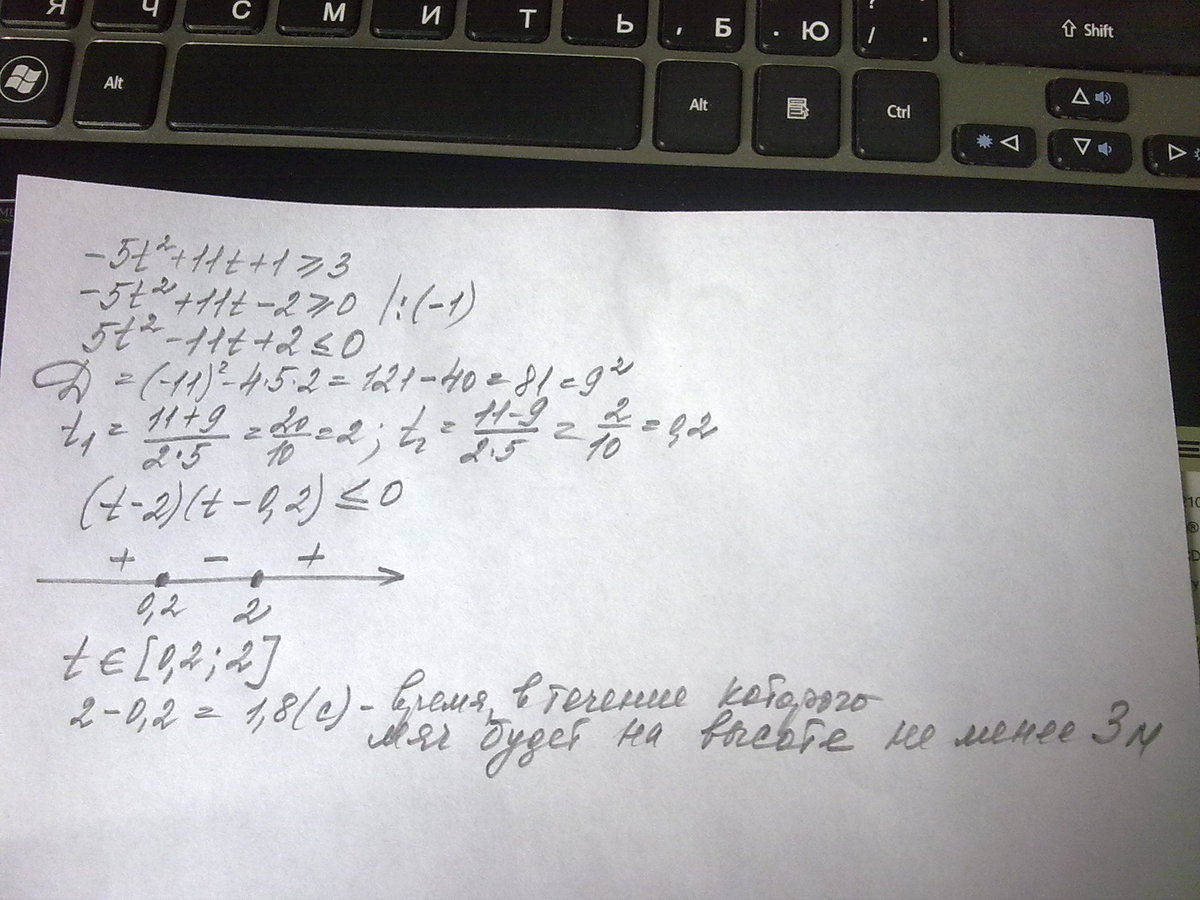 Я Ч С М И Т Ь , Б . Ю ? / . ⇧ Shift
Alt Alt Ctrl
-5t²+11t+1⩾3
-5t²+11t-2⩾0 |:(-1)
5t²-11t+2≤0
D=(-11)²-4·5·2=121-40=81=9²
t₁=11+9/2·5=20/10=2; t₂=11-9/2·5=2/10=0,2
(t-2)(t-0,2)≤0
+ - +
0,2 2
t∈[0,2;2]
2-0,2=1,8(с)- время, в течение которого
мяч будет на высоте не менее 3м